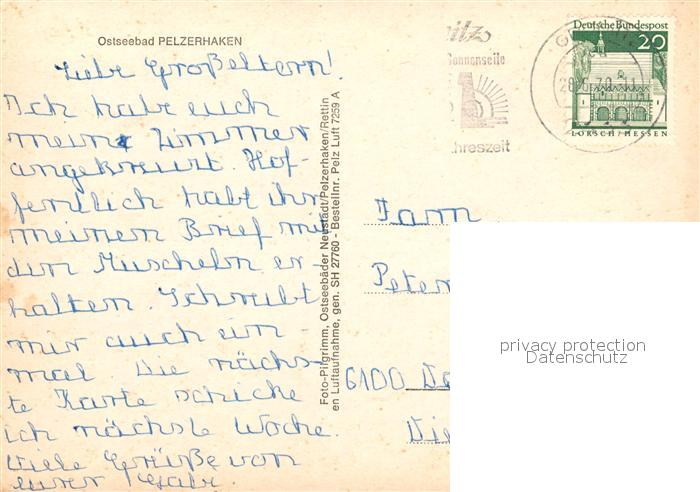 Ostseebad PELZERHAKEN
Liebe Großeltern!
Ich habe euch
mein Zimmer
angekreuzt. Hof-
fentlich habt ihr
meinen Brief mit
den Muscheln er-
halten. Schreibt
mir auch ein-
mal. Die nächs-
te Karte schicke
ich nächste Woche.
Viele Grüße von
eurer
Foto-Pilgrimm, Ostseebäder Neustadt/Pelzerhaken/Rettin
en Luftaufnahme, gen. SH 27760 - Bestellnr. Pelz Luft 7259 A
Sonnenseite
hreszeit
Deutsche Bundespost
20
LORSCH/HESSEN
Fam
Peter
6100
privacy protection
Datenschutz